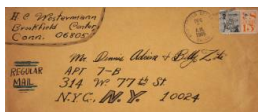 H C Westermann
Brookfield Center
Conn. 06805
15
REGULAR
MAIL
Mr. Dennis Adrian & Billy
APT 7-B
314 W. 77th St
N.Y.C., N.Y. 10024